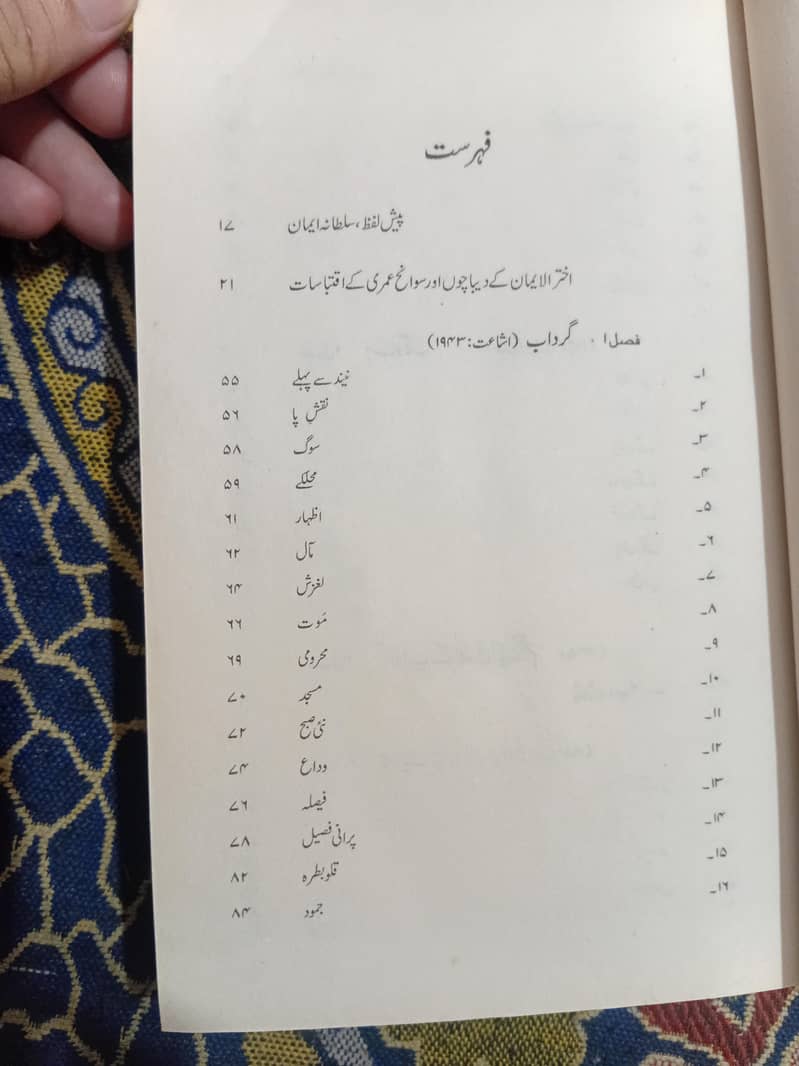 فہرست
پیش لفظ، سلطانہ ایمان ۱۷
اختر الایمان کے دیباچوں اور سوانح عمری کے اقتباسات ۲۱
فصل ۱. گرداب (اشاعت: ۱۹۴۳)
۱۔ نیند سے پہلے ۵۵
۲۔ نقشِ پا ۵۶
۳۔ سوگ ۵۸
۴۔ محلکے ۵۹
۵۔ اظہار ۶۱
۶۔ مآل ۶۲
۷۔ لغزش ۶۴
۸۔ مَوت ۶۶
۹۔ محرومی ۶۹
۱۰۔ مسجد ۷۰
۱۱۔ نئی صبح ۷۲
۱۲۔ وداع ۷۴
۱۳۔ فیصلہ ۷۶
۱۴۔ پرانی فصیل ۷۸
۱۵۔ قلوبطرہ ۸۲
۱۶۔ جمود ۸۴